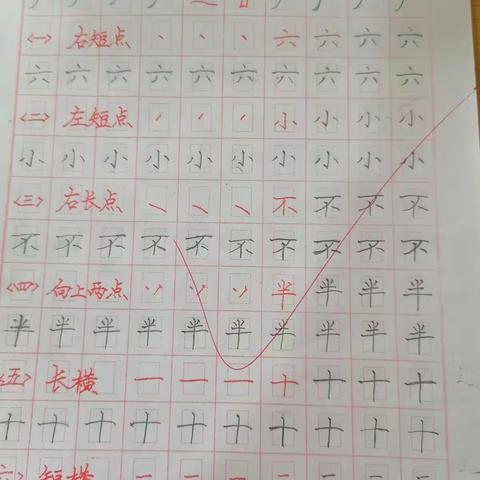 〈一〉 右短点 丶 丶 丶 六 六 六 六
六 六 六 六 六 六 六 六 六 六
〈二〉 左短点 ㇒ ㇒ ㇒ 小 小 小 小
小 小 小 小 小 小 小 小 小 小
〈三〉 右长点 ㇏ ㇏ ㇏ 不 不 不 不
不 不 不 不 不 不 不 不 不 不
〈四〉 向上两点 丷 丷 丷 半 半 半 半
半 半 半 半 半 半 半 半 半 半
〈五〉 长横 一 一 一 十 十 十 十
十 十 十 十 十 十 十 十 十 十
〈六〉 短横